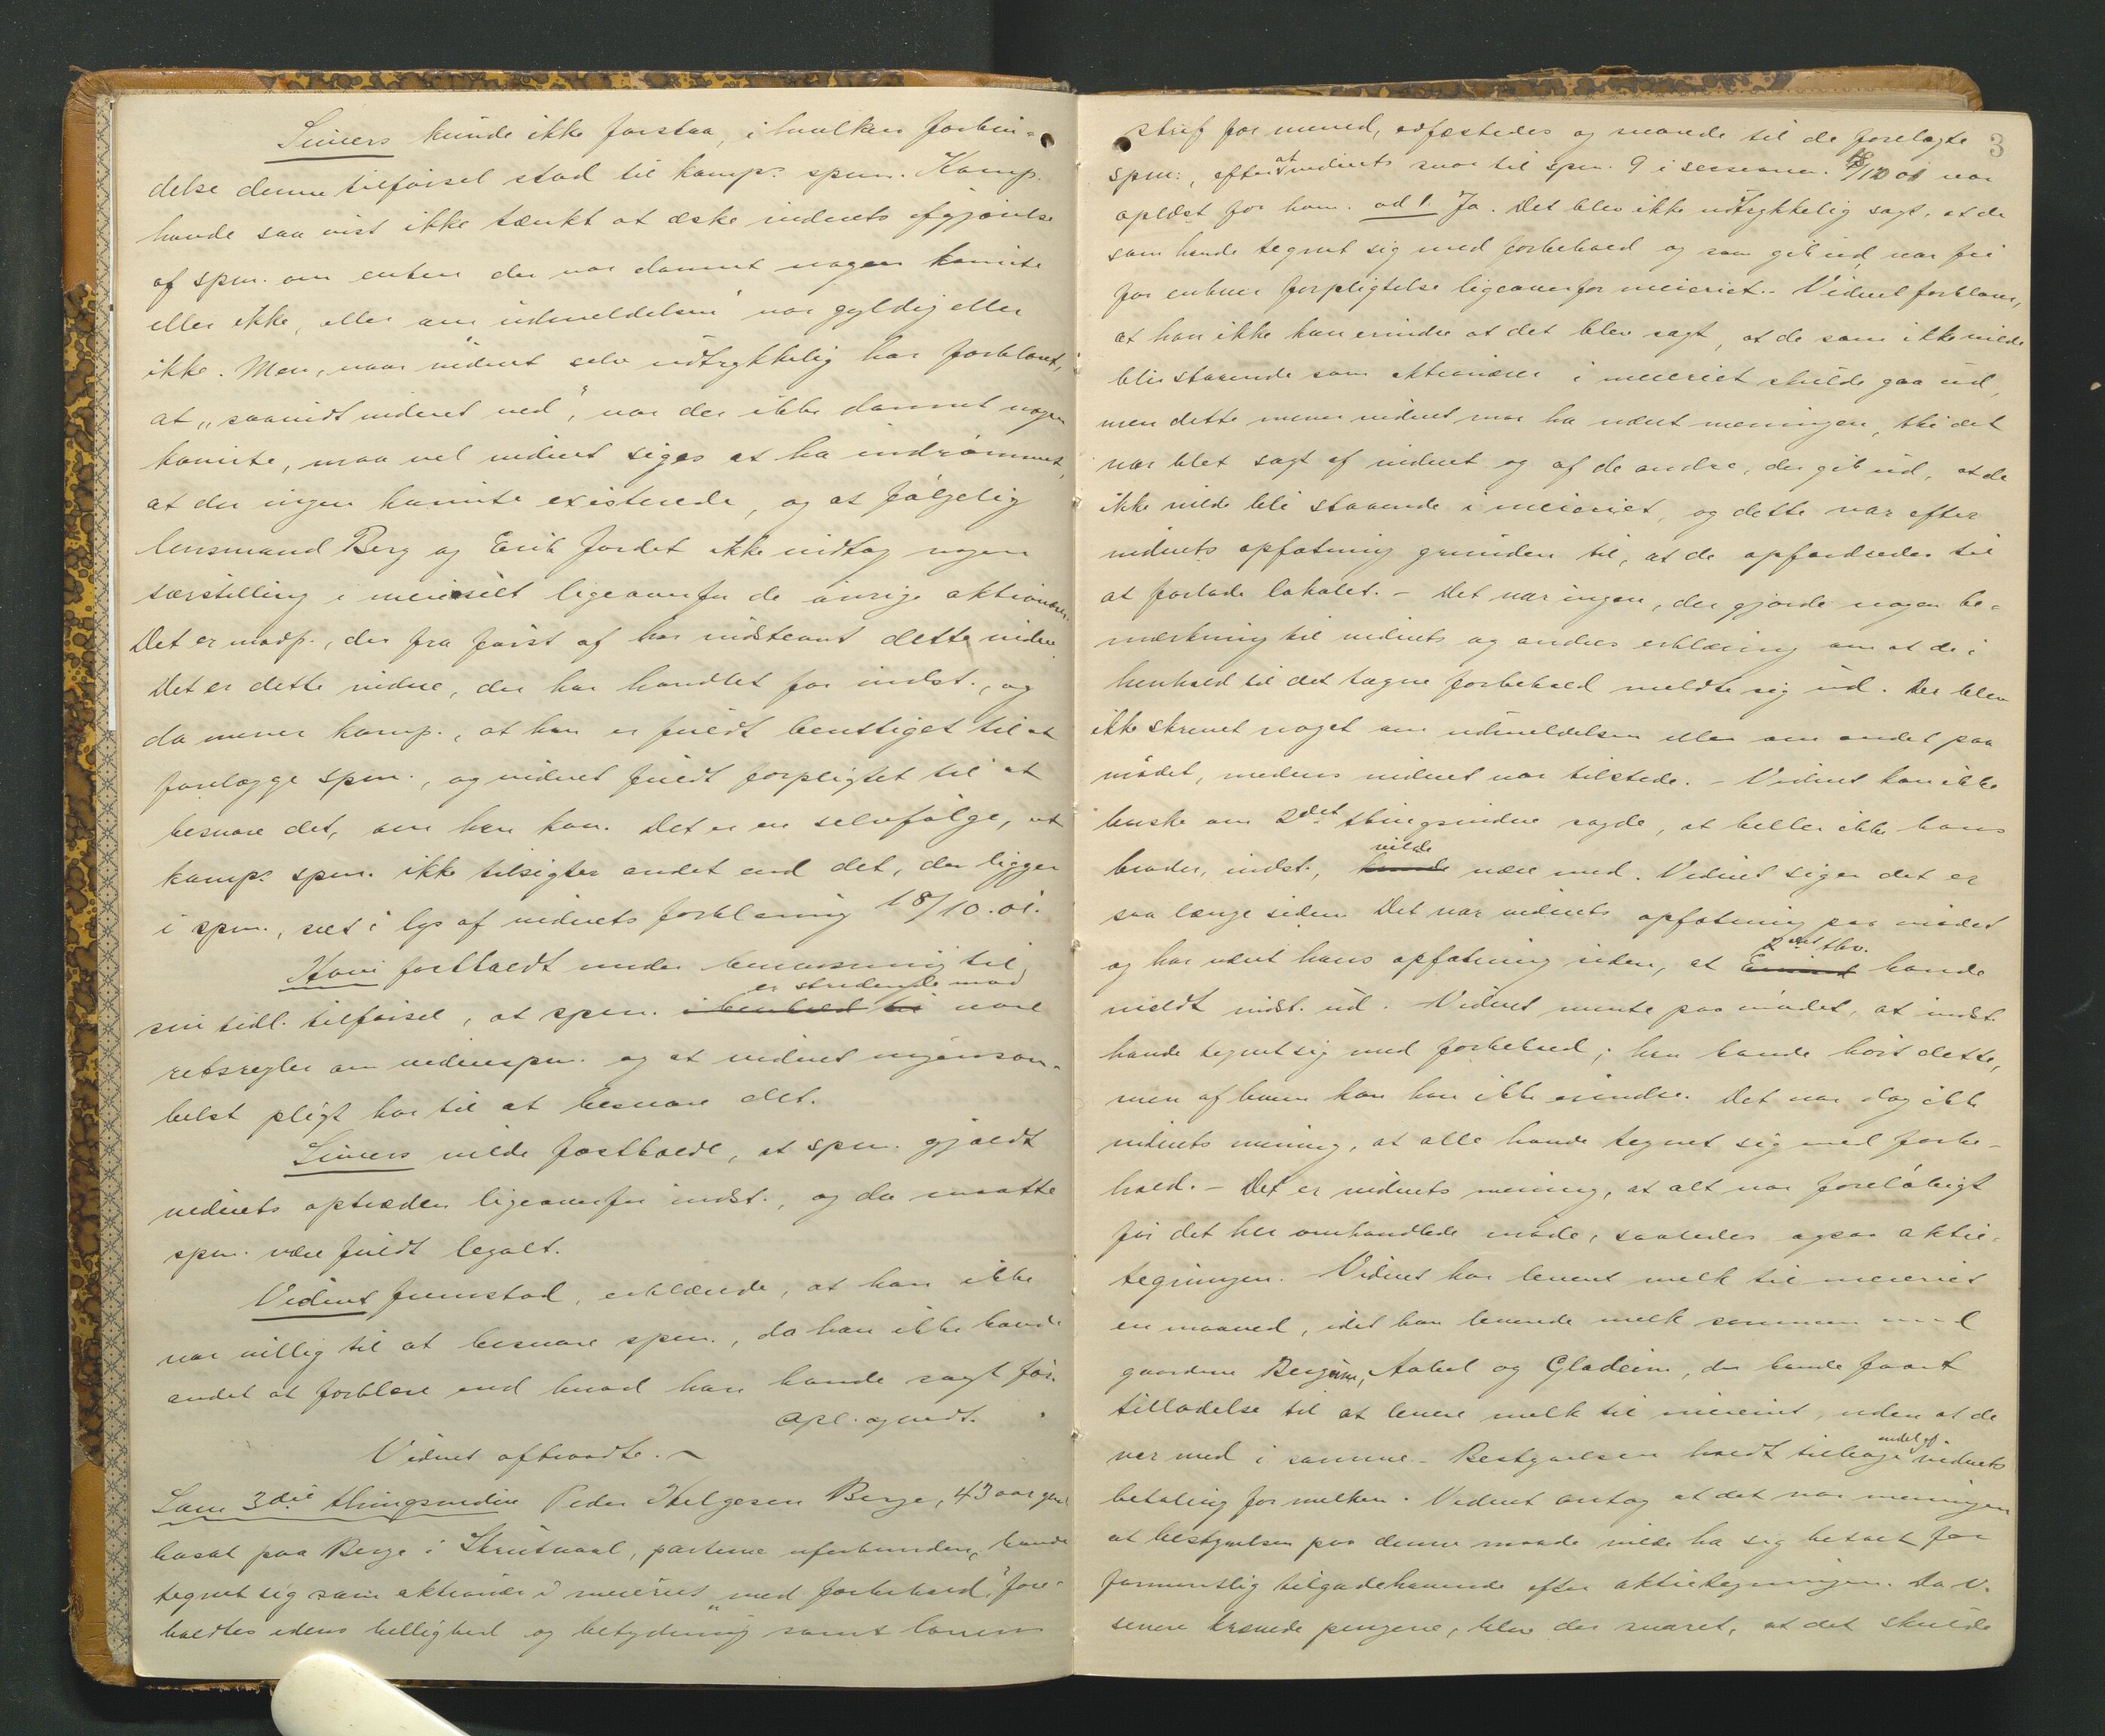 Sivers kunde ikke forstaa, i hvilken forbin-
delse denne tilførsel stod til kamp's spm. Kamp.
havde saa vist ikke tænkt at æske vidnets afgjørelse
af spm. om enten der var dannet nogen komite
eller ikke, eller om udmeldelsen var gyldig eller
ikke. Men, naar vidnet selv udtrykkelig har forklaret,
at „saavidt vidnet ved“, var der ikke dannet nogen
komite, maa vel vidnet siges at ha indrømmet,
at der ingen komite existerede, og at følgelig
lensmand Berg og Erik Jordet ikke indtog nogen
særstilling i meieriet ligeoverfor de øvrige aktionærer.
Det er modp., der fra først af har indstevnt dette vidne.
Det er dette vidne, der har handlet for indst., og
da mener kamp., at han er fuldt berettiget til at
forelægge spm., og vidnet fuldt forpligtet til at
besvare det, om han kan. Det er en selvfølge, at
kamp's spm. ikke tilsigter andet end det, der ligger
i spm., set i lys af vidnets forklaring 18/10.01.
Hovi fastholdt under henvisning til
er stridende mod
sin tidl. tilførsel, at spm. i henhold til vore
retsregler om vidnespm. og at vidnet ingensom-
helst pligt har til at besvare det.
Sivers vilde fastholde, at spm. gjældt
vidnets optræden ligeoverfor indst., og da maatte
spm. være fuldt legalt.
Vidnet fremstod, erklærede, at han ikke
var villig til at besvare spm., da han ikke havde
andet at forklare end hvad han havde sagt før.
Opl. og vedt.
Vidnet aftraadte. –
Som 3die thingsvidne Peder Helgesen Berge, 43 aar gml
bosat paa Berge i Skrutvaal, parterne uforbunden, havde
tegnet sig som aktionær i meieriet „med forbehold“, fore-
holdtes edens hellighed og betydning samt lovens
3
straf for mened, edfæstedes og svarede til de forelagte
spm., efter at vidnets svar til spm. 9 i sessionen 18/10 01 var
oplæst for ham. ad 1. Ja. Det blev ikke udtrykkelig sagt, at de
som havde tegnet sig med forbehold og som gik ud, var fri
for enhver forpligtelse ligeoverfor meieriet. – Vidnet forklarer,
at han ikke kan erindre at det blev sagt, at de som ikke vilde
bli staaende som aktionærer i meieriet skulde gaa ud,
men dette mener vidnet maa ha været meningen, thi det
var blet sagt af vidnet og af de andre, der gik ud, at de
ikke vilde bli staaende i meieriet, og dette var efter
vidnets opfatning grunden til, at de opfordredes til
at forlade lokalet. – Det var ingen, der gjorde nogen be-
mærkning til vidnets og andres erklæring om at de i
henhold til det tagne forbehold meldte sig ud. Der blev
ikke skrevet noget om udmeldelsen eller om andet paa
mødet, medens vidnet var tilstede. – Vidnet kan ikke
huske om 2det thingsvidne sagde, at heller ikke hans
vilde
broder, indst., havde være med. Vidnet siger det er
saa længe siden. Det var vidnets opfatning paa mødet
2det thv.
og har været hans opfatning siden, at havde
meldt indst. ud. Vidnet mente paa mødet, at indst.
havde tegnet sig med forbehold; han havde hørt dette,
men af hvem kan han ikke erindre. Det var dog ikke
vidnets mening, at alle havde tegnet sig med forbe-
hold. – Det er vidnets mening, at alt var foreløbigt
før det her omhandlede møde, saaledes ogsaa aktie-
tegningen. Vidnet har levert melk til meieriet
en maaned, idet han leverede melk sammen med
gaardene Bergene, Aabel og Gladeim, der havde faaet
tilladelse til at levere melk til meieriet, uden at de
var med i samme. – Bestyrelsen holdt tilbage endel af vidnets
betaling for melken. Vidnet antog at det var meningen
at bestyrelsen paa denne maade vilde ha sig betalt for
formentlig tilgodehavende efter aktietegningen. Da v.
senere krævede pengene, blev der svaret, at det skulde